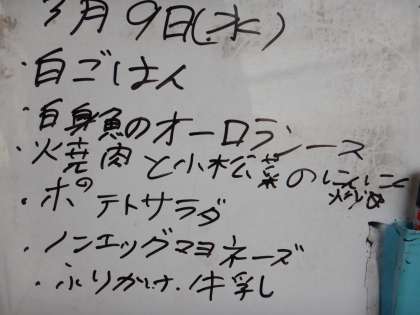 3月9日(水)
・白ごはん
・白身魚のオーロラソース
・火売肉と小松菜のにんにく炒め
・ポテトサラダ
・ノンエッグマヨネーズ
・ふりかけ、牛乳